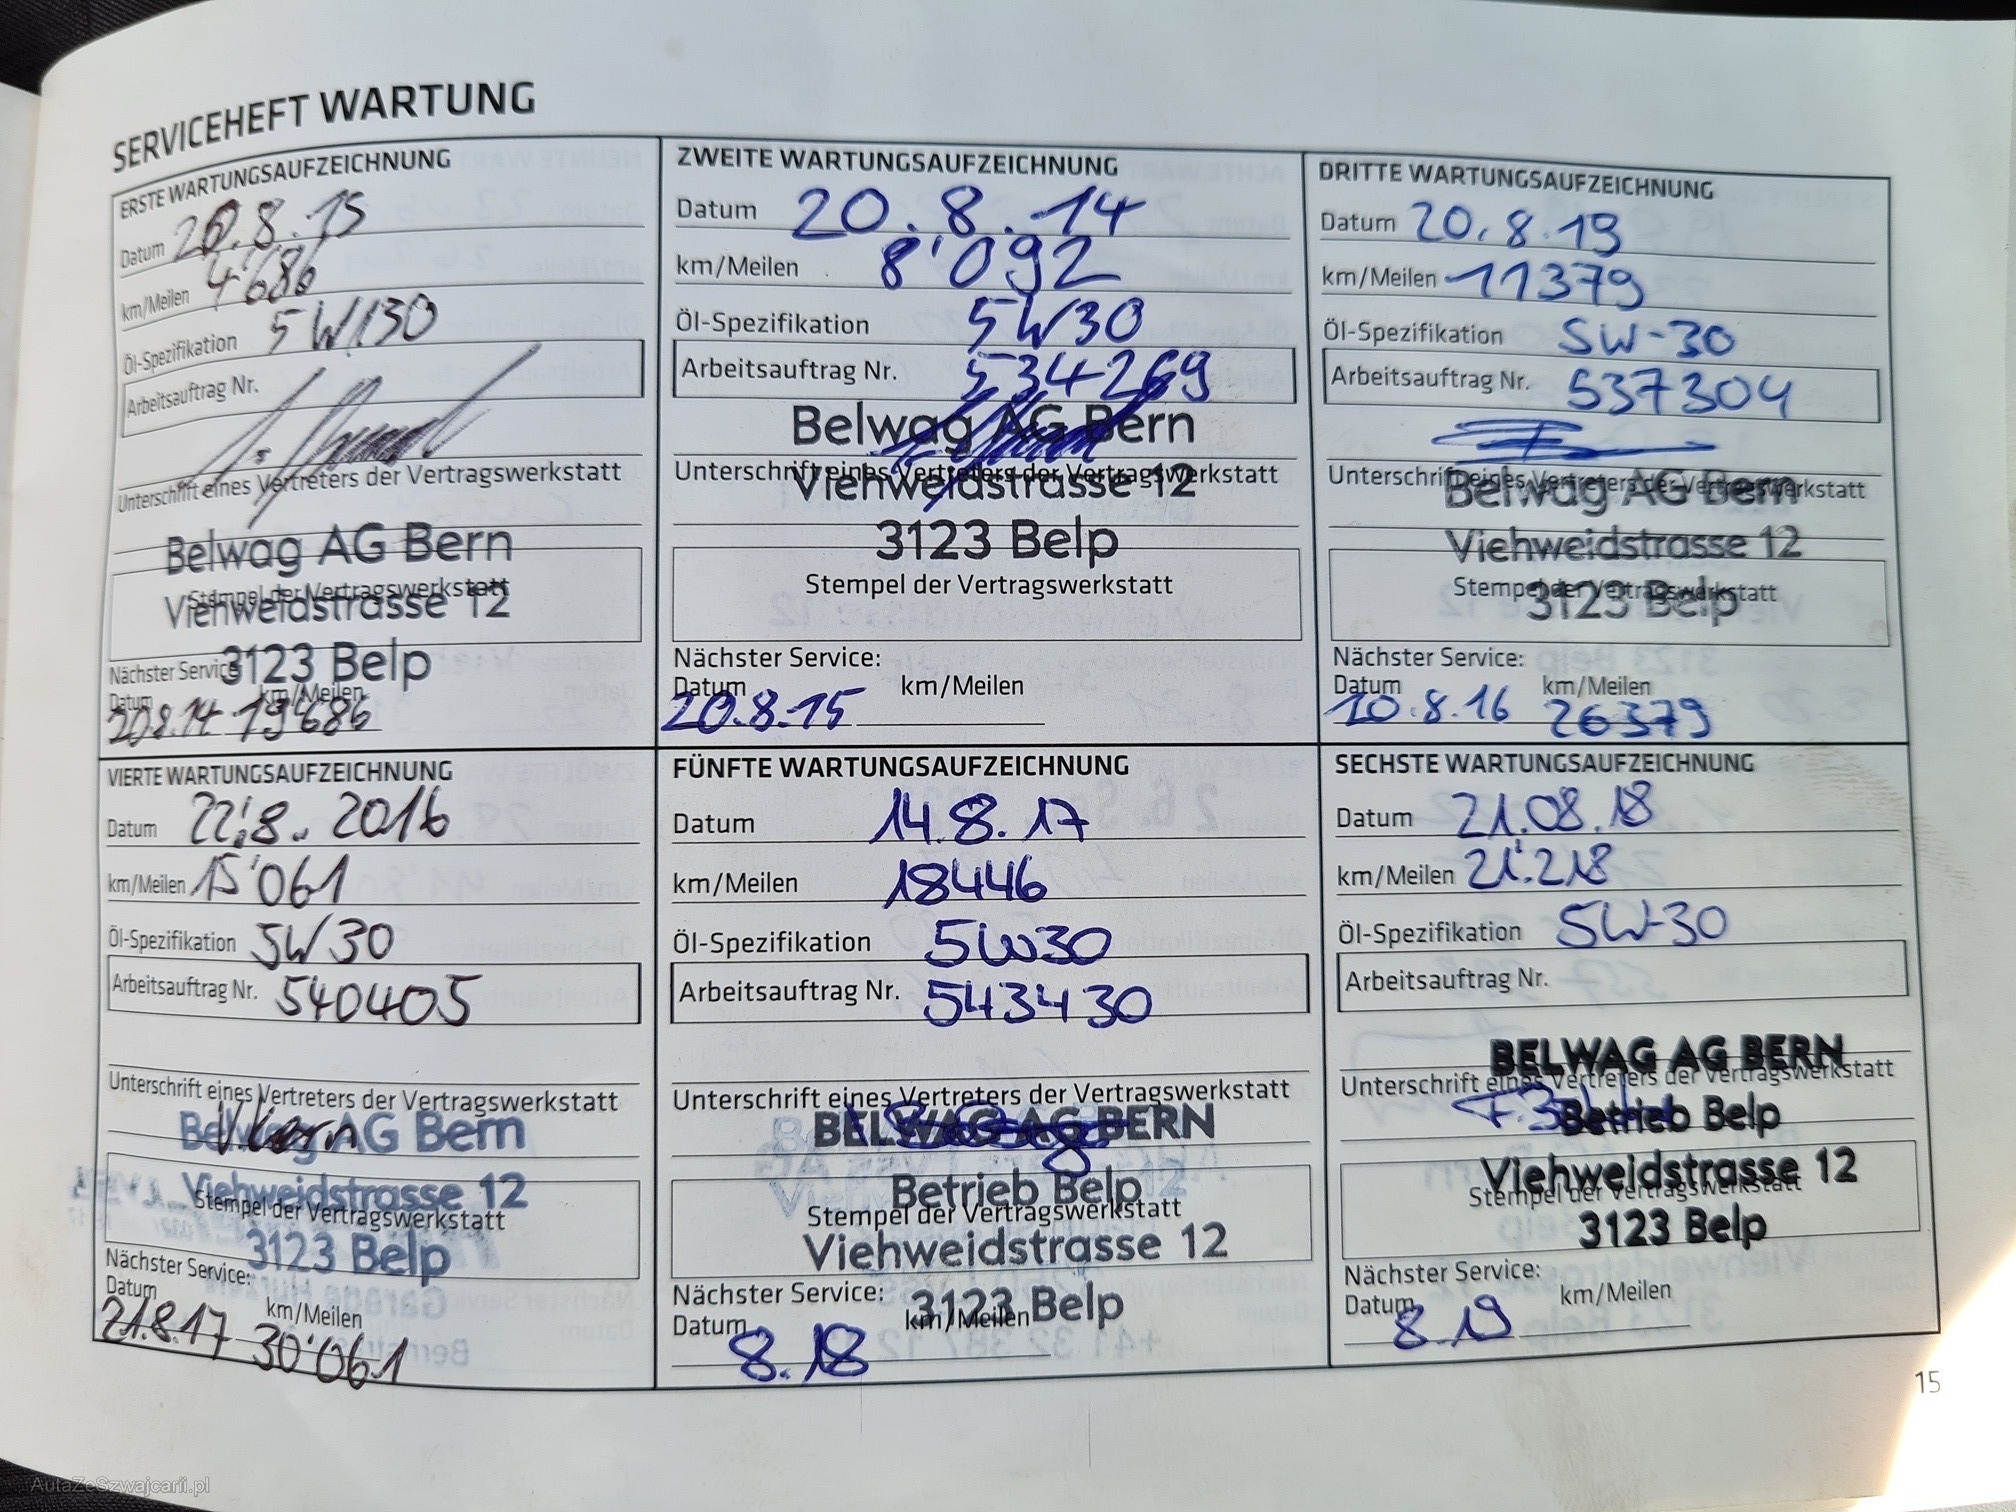 SERVICEHEFT WARTUNG
ERSTE WARTUNGSAUFZEICHNUNG
Datum 20.8.15
km/Meilen 4'686
Öl-Spezifikation 5W/30
Arbeitsauftrag Nr.
Unterschrift eines Vertreters der Vertragswerkstatt
Belwag AG Bern
Stempel der Vertragswerkstatt
Viehweidstrasse 12
3123 Belp
Nächster Service
Datum km/Meilen
20.8.14 19'686
ZWEITE WARTUNGSAUFZEICHNUNG
Datum 20.8.14
km/Meilen 8'092
Öl-Spezifikation 5W30
Arbeitsauftrag Nr. 534269
Belwag AG Bern
Unterschrift eines Vertreters der Vertragswerkstatt
Viehweidstrasse 12
3123 Belp
Stempel der Vertragswerkstatt
Nächster Service:
Datum km/Meilen
20.8.15
DRITTE WARTUNGSAUFZEICHNUNG
Datum 20.8.15
km/Meilen 11379
Öl-Spezifikation 5W-30
Arbeitsauftrag Nr. 537304
Unterschrift eines Vertreters der Vertragswerkstatt
Belwag AG Bern
Viehweidstrasse 12
Stempel der Vertragswerkstatt
3123 Belp
Nächster Service:
Datum km/Meilen
20.8.16 26379
VIERTE WARTUNGSAUFZEICHNUNG
Datum 22.8. 2016
km/Meilen 15'061
Öl-Spezifikation 5W30
Arbeitsauftrag Nr. 540405
Unterschrift eines Vertreters der Vertragswerkstatt
Belwag AG Bern
Viehweidstrasse 12
Stempel der Vertragswerkstatt
3123 Belp
Nächster Service:
Datum km/Meilen
21.8.17 30'061
FÜNFTE WARTUNGSAUFZEICHNUNG
Datum 14.8.17
km/Meilen 18446
Öl-Spezifikation 5W30
Arbeitsauftrag Nr. 543430
Unterschrift eines Vertreters der Vertragswerkstatt
BELWAG AG BERN
Betrieb Belp
Stempel der Vertragswerkstatt
Viehweidstrasse 12
Nächster Service:
3123 Belp
Datum km/Meilen
8.18
SECHSTE WARTUNGSAUFZEICHNUNG
Datum 21.08.18
km/Meilen 21'218
Öl-Spezifikation 5W-30
Arbeitsauftrag Nr.
BELWAG AG BERN
Unterschrift eines Vertreters der Vertragswerkstatt
Betrieb Belp
Viehweidstrasse 12
Stempel der Vertragswerkstatt
3123 Belp
Nächster Service:
Datum km/Meilen
8.19
15
AutaZeSzwajcarii.pl